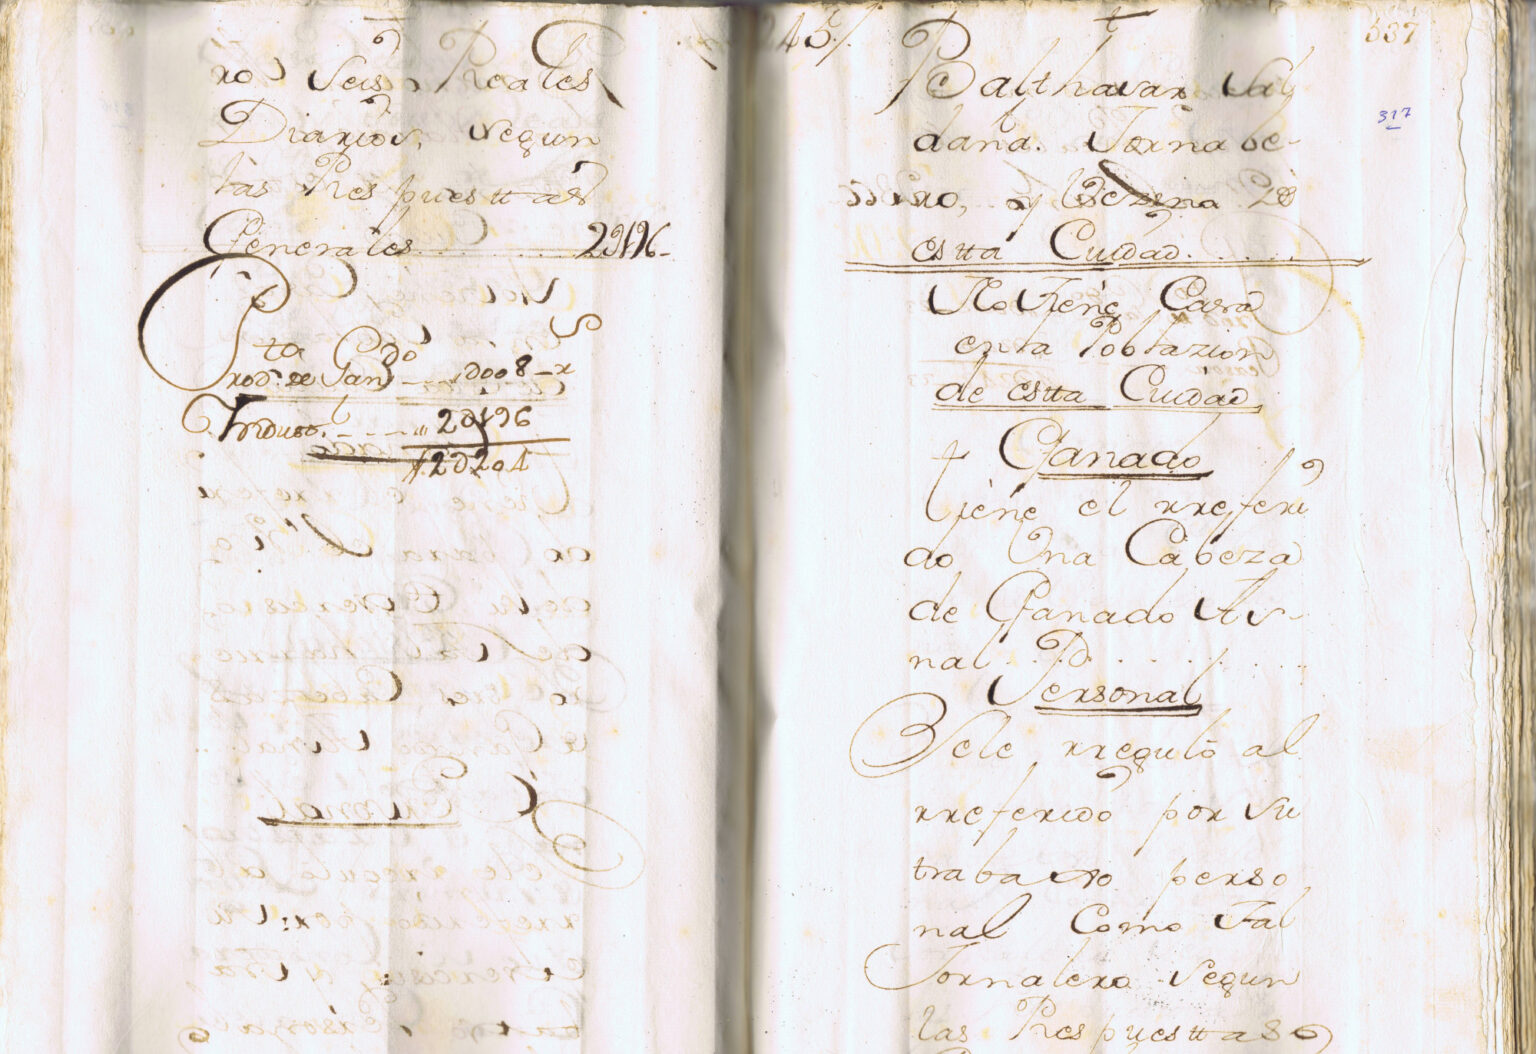 ro Seis Reales
Diarios, segun
las Respuesttas
Generales........ 2d196-
Sta Cdo
Prod.º de Gan.º --- „ d008-r s
Indust.l ---- „„ 2d196
2d204
245/
337
317
Balthasar Sal
daña. Jorna le-
ro, y Vezino de
estta Ciudad......
No tiene Casa
en la Poblazion
de estta Ciudad
Ganado
tiene el rreferi
do Una Cabeza
de Ganado As-
nal.........
Personal
Sele rregulò al
rreferido por su
trabaxo perso
nal Como tal
Jornalero segun
las Respuesttas G